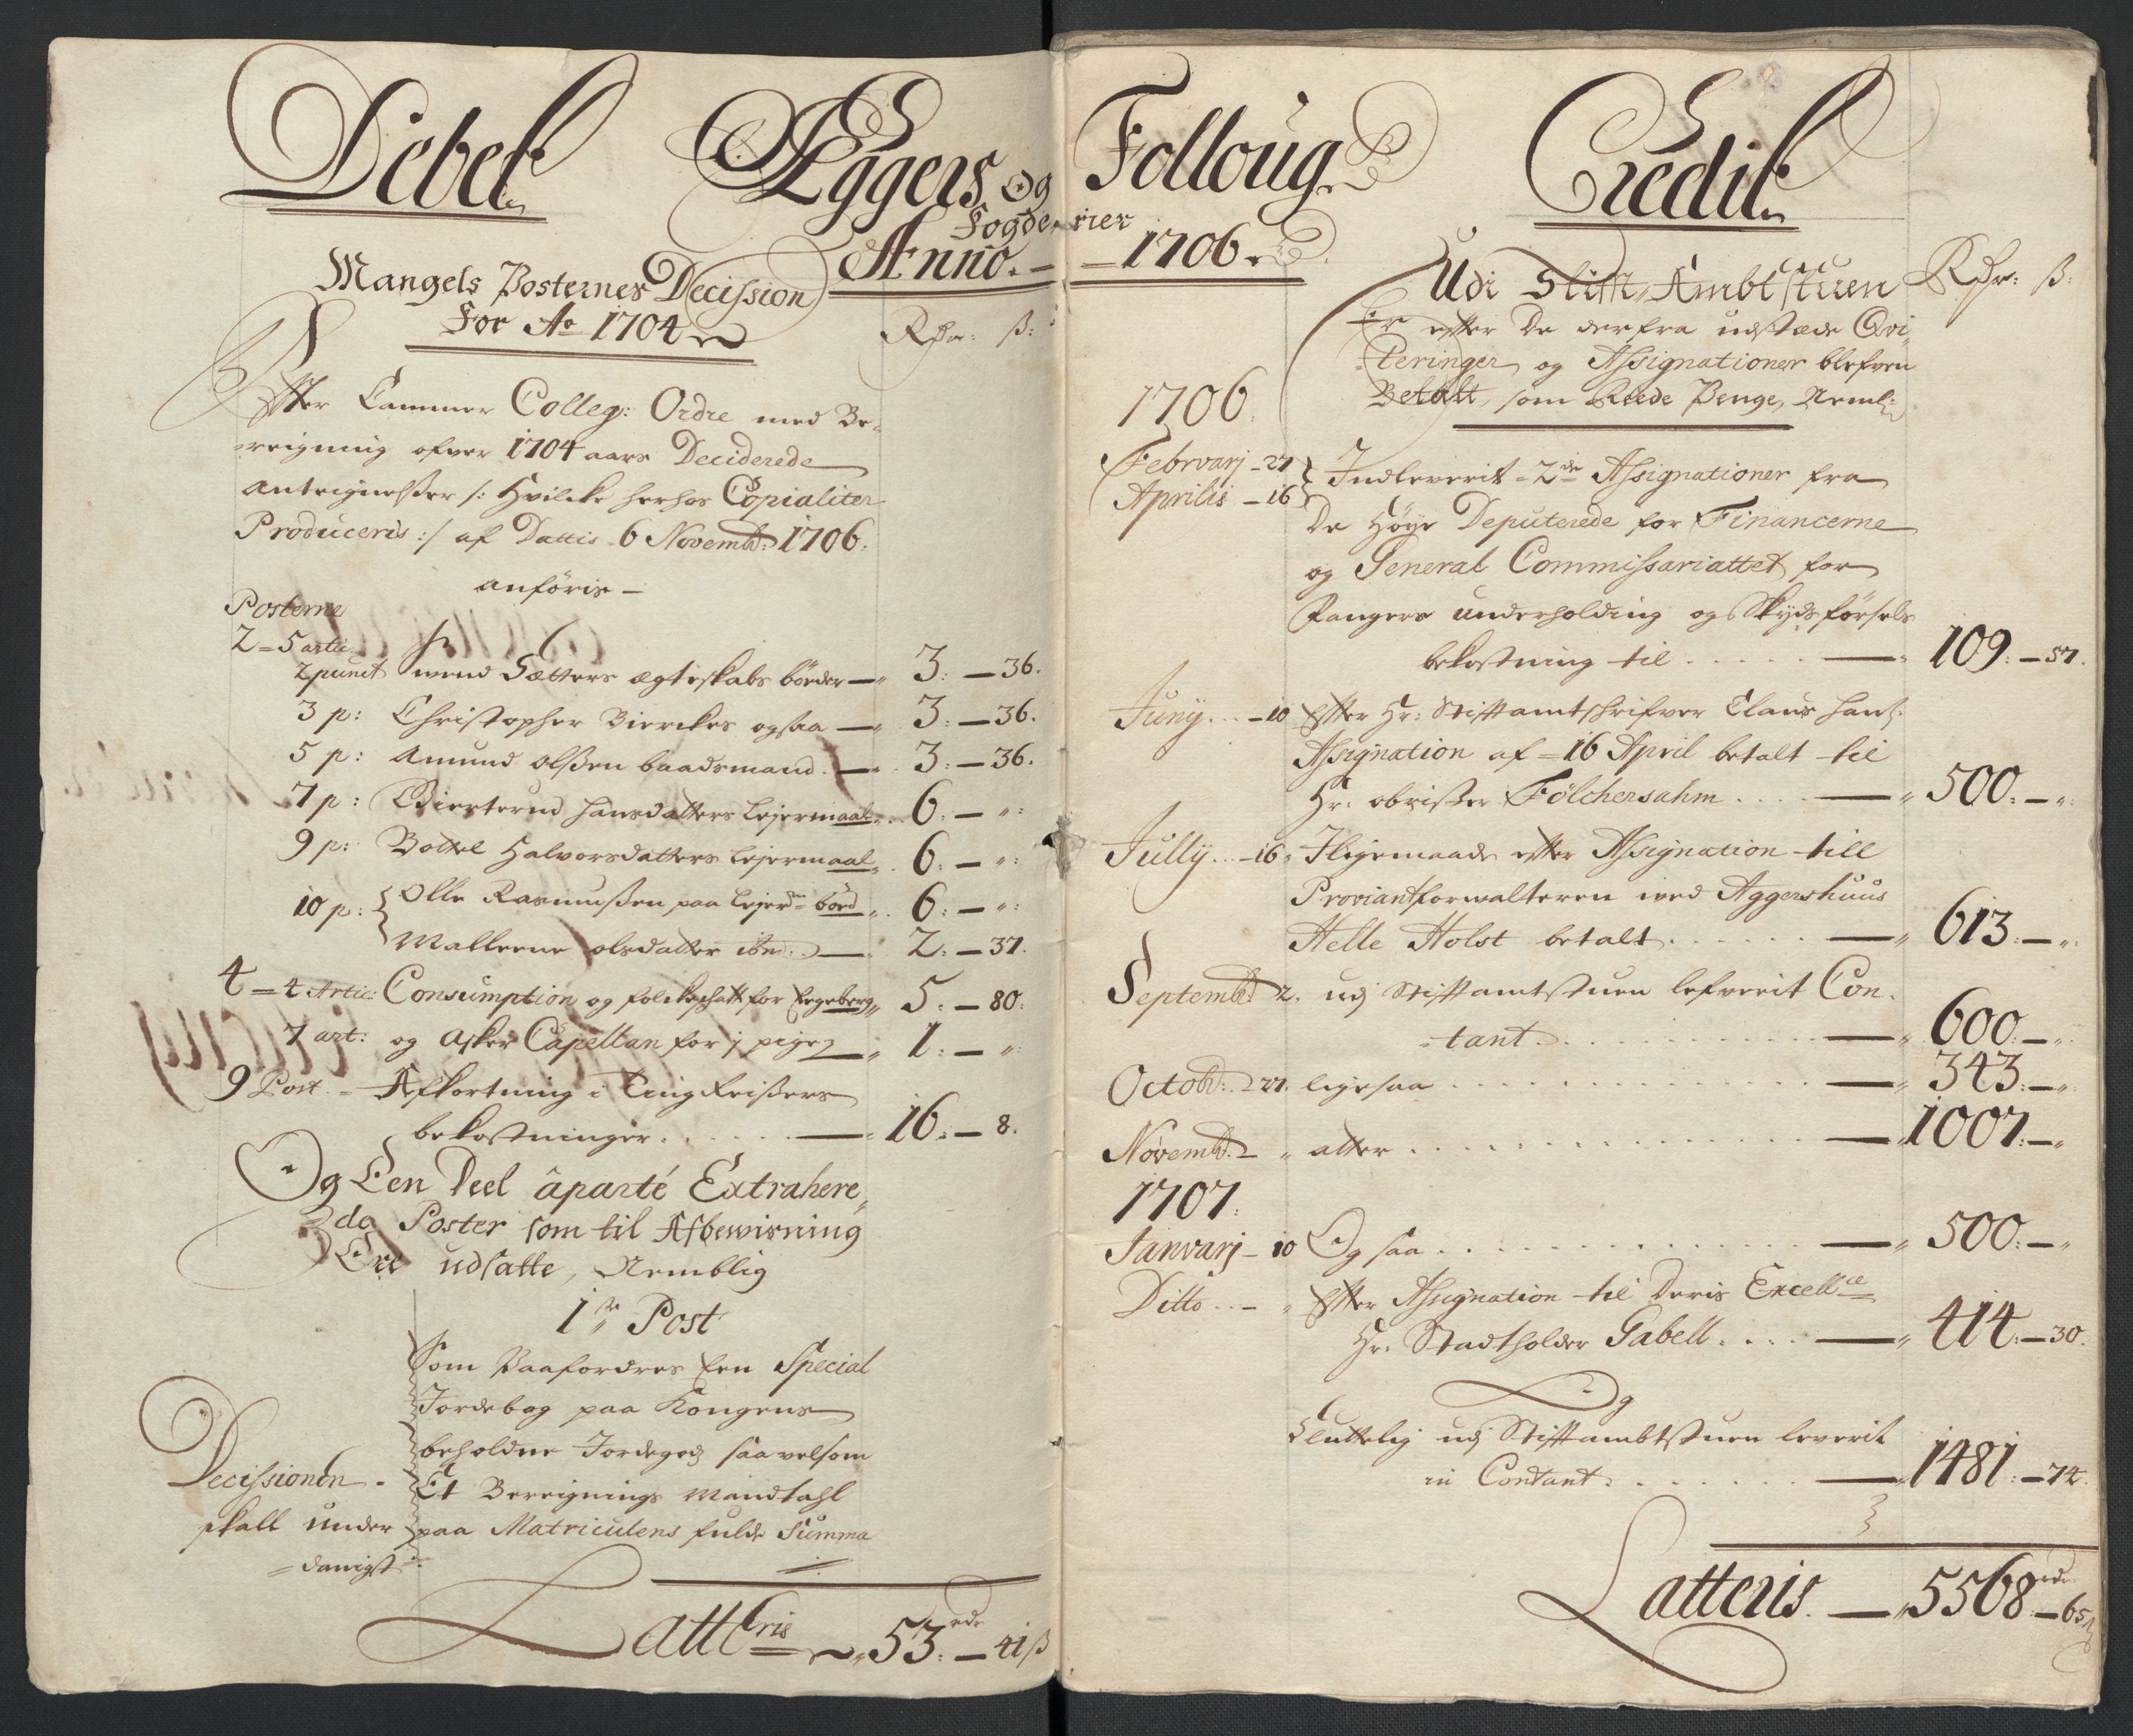 Debet
Æggers og
Fogde
Anno. —
Mangels Posternes Decission
For Ao 1704
Rdr: ß:
Efter Cammer Colleg: Ordre med Be-
reigning ofver 1704 aars Deciderede
Anteignelßer /: Hvilcke herhos Copialiter
Produceris :/ af Dattis 6 Novembr: 1706.
anföris –
Posterne
2 = 5 artic.
2 punct Sætters ægteskabs böeder — 3: — 36.
3 p: Christopher Bierckes ogsaa — 3: — 36.
5 p: Amund olßen baadsmand — 3: — 36.
7 p: hansdatters Lejermaal 6: — „:
9 p: Bottel Halvorsdatters Lejermaal 6: — „:
10 p: Olle Rasmußen paa Lejerm: böed 6: — „:
olsdatter — 2: — 37.
4 = 4 Artic: Consumption og folckeschatt for Hegeberg 5: — 80:
7 art: og Asker Capellan for j pige 1: — „:
9 Post = Afkortning i Ting Reißers
bekostninger . . . . — 16: — 8.
Og Een Deel aparté Extrahere,
de Poster som til Afbewisning
Ere udsatte, Nemblig
1te Post
Som Paafordres Een Special
Jordebog paa Kongens
beholdne Jordegods saavelsom
Decissionen - Et Bereignings Mandtahl
skall under paa Matriculens fulde Summa
= danigst
Latteris 53 rdr — 41 ß
Folloug
rier
— 1706
Credit
Udi Stift Ambtstuen Rdr: ß:
Er efter De derfra udstæde Qvi-
teringer og Assignationer blefven
Betalt, som Reede Penge, Neml:
1706.
Februarj – 27 Indleverit = 2de Assignationer fra
Aprilis – 16
De Höye Deputerede for Financerne
og General Commissariattet for
Fangers underholding og Skydsförsels
bekostning til . . . . — 109: — 57.
Junij . . – 10 Efter Hr: Stiftamtschrifver Claus Hanß:
Assignation af = 16 April betalt til
Hr: obrister Fölchersahm . . . . — 500: — „:
Jullij . . – 16 „ Iligemaade efter Assignation till
Proviantforvalteren ved Aggershuus
Helle Holst betalt . . . . — 613: — „:
Septembr 2. udj Stiftamtstuen lefverit Con-
tant . . . . — 600: — „:
Octobr: 27. ligesaa . . . . — 343: — „:
Novembr: – „ atter . . . . — 1007: — „
1707.
Januarj – 10 Og saa . . . . — 500: — „
Ditto . . – „ Efter Assignation til Deris Excellce
Hr: Stadtholder Gabell . . . . — 414: — 30.
Og
Sluttelig udj Stiftambtstuen leverit
in Contant . . . . — 1481: — 74.
Latteris. — 5568 rdr — 65 ß